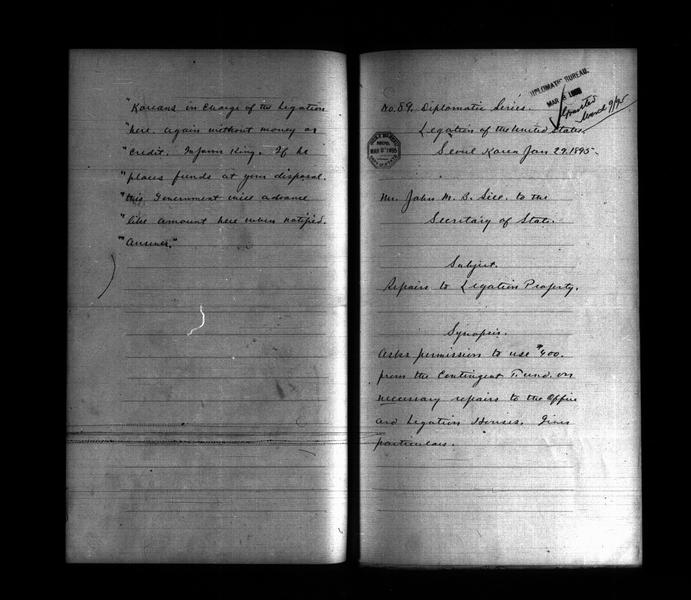 "Koreans in charge of the Legation
"here. Again without money or
"credit. Inform King. If he
"places funds at your disposal.
"this Government will advance
"like amount here when notified.
"Answer."
DIPLOMATIC BUREAU.
MAR 8 1895
Granted
March 9/95
No. 89. Diplomatic Series.
Legation of the United States.
Seoul Korea Jan 29. 1895.
Mr. John M. B. Sill. to the
Secretary of State.
Subject.
Repairs to Legation Property.
Synopsis.
Asks permission to use $400.
from the Contingent Fund. on
necessary repairs to the Office
and Legation Houses. Gives
particulars.